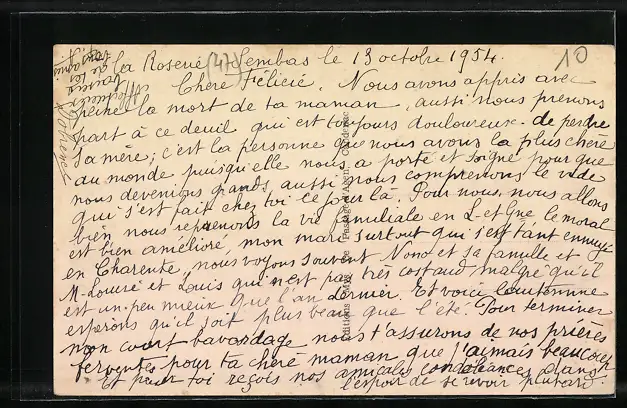 La Roseraie (47) Sembas le 13 octobre 1954.
10
Chère Félicie. Nous avons appris avec
peine la mort de ta maman, aussi nous prenons
part à ce deuil qui est toujours douloureux de perdre
sa mère; c'est la personne que nous avons la plus chère
au monde puisqu'elle nous a porté et soigné pour que
nous devenions grands aussi nous comprenons le vide
qui s'est fait chez toi ce jour là. Pour nous, nous allons
bien nous reprenons la vie familiale en L et Gne le moral
est bien amélioré mon mari surtout qui s'est tant ennuyé
en Charente, nous voyons souvent Nono et sa famille et
M. Louvré et Louis qui n'est pas très costaud, malgré qu'il
est un peu mieux que l'an dernier. Et voici l'automne
espérons qu'il soit plus beau que l'été. Pour terminer
mon court bavardage nous t'assurons de nos prières
ferventes pour ta chère maman que j'aimais beaucoup
Et pour toi reçois nos amicales condoléances dans
l'espoir de se revoir plus tard.
de tes
amis